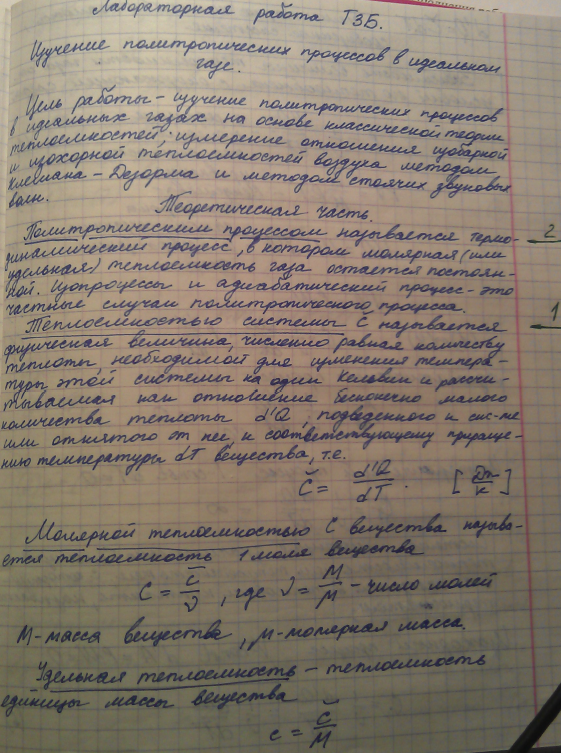 Лабораторная работа Т3Б.
Изучение политропических процессов в идеальном
газе.
Цель работы - изучение политропических процессов
в идеальных газах на основе классической теории
теплоемкостей; измерение отношения изобарной
и изохорной теплоемкостей воздуха методом
Клемана - Дезорма и методом стоячих звуковых
волн.
Теоретическая часть.
Политропическим процессом называется термо-
динамический процесс, в котором молярная (или
удельная) теплоемкость газа остается постоян-
ной. Изопроцессы и адиабатический процесс - это
частные случаи политропического процесса.
Теплоемкостью системы C̆ называется
физическая величина, численно равная количеству
теплоты, необходимой для изменения темпера-
туры этой системы на один Кельвин и рассчи-
тываемая как отношение бесконечно малого
количества теплоты d'Q, подведенного к сис-ме
или отнятого от нее, к соответствующему прираще-
нию температуры dT вещества, т.е.
C̆ = d'Q/dT. [Дж/К]
Молярной теплоемкостью C вещества назыв-
ается теплоемкость 1 моля вещества
C = C̆/ν, где ν = M/μ - число молей
M - масса вещества, μ - молярная масса.
Удельная теплоемкость - теплоемкость
единицы массы вещества
c = C̆/M
2
1